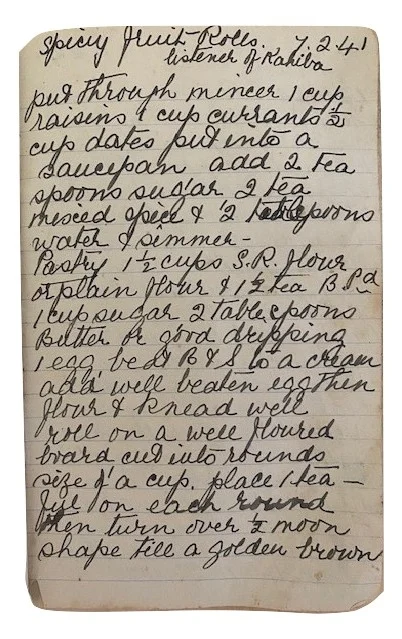 Spicy Fruit Rolls. 7.2.41
listener of Kahiba
put through mincer 1 cup
raisins 1 cup currants ½
cup dates put into a
saucepan add 2 tea
spoons sugar 2 tea
mixced spice & 2 tablespoons
water & simmer -
Pastry 1½ cups S.R. flour
or plain flour & 1½ tea B.Pd
1 cup sugar 2 tablespoons
Butter or good dripping
1 egg beat B & S to a cream
add well beaten egg then
flour & knead well
roll on a well floured
board cut into rounds
size of a cup. place 1 tea -
ful on each round
then turn over ½ moon
shape till a golden brown